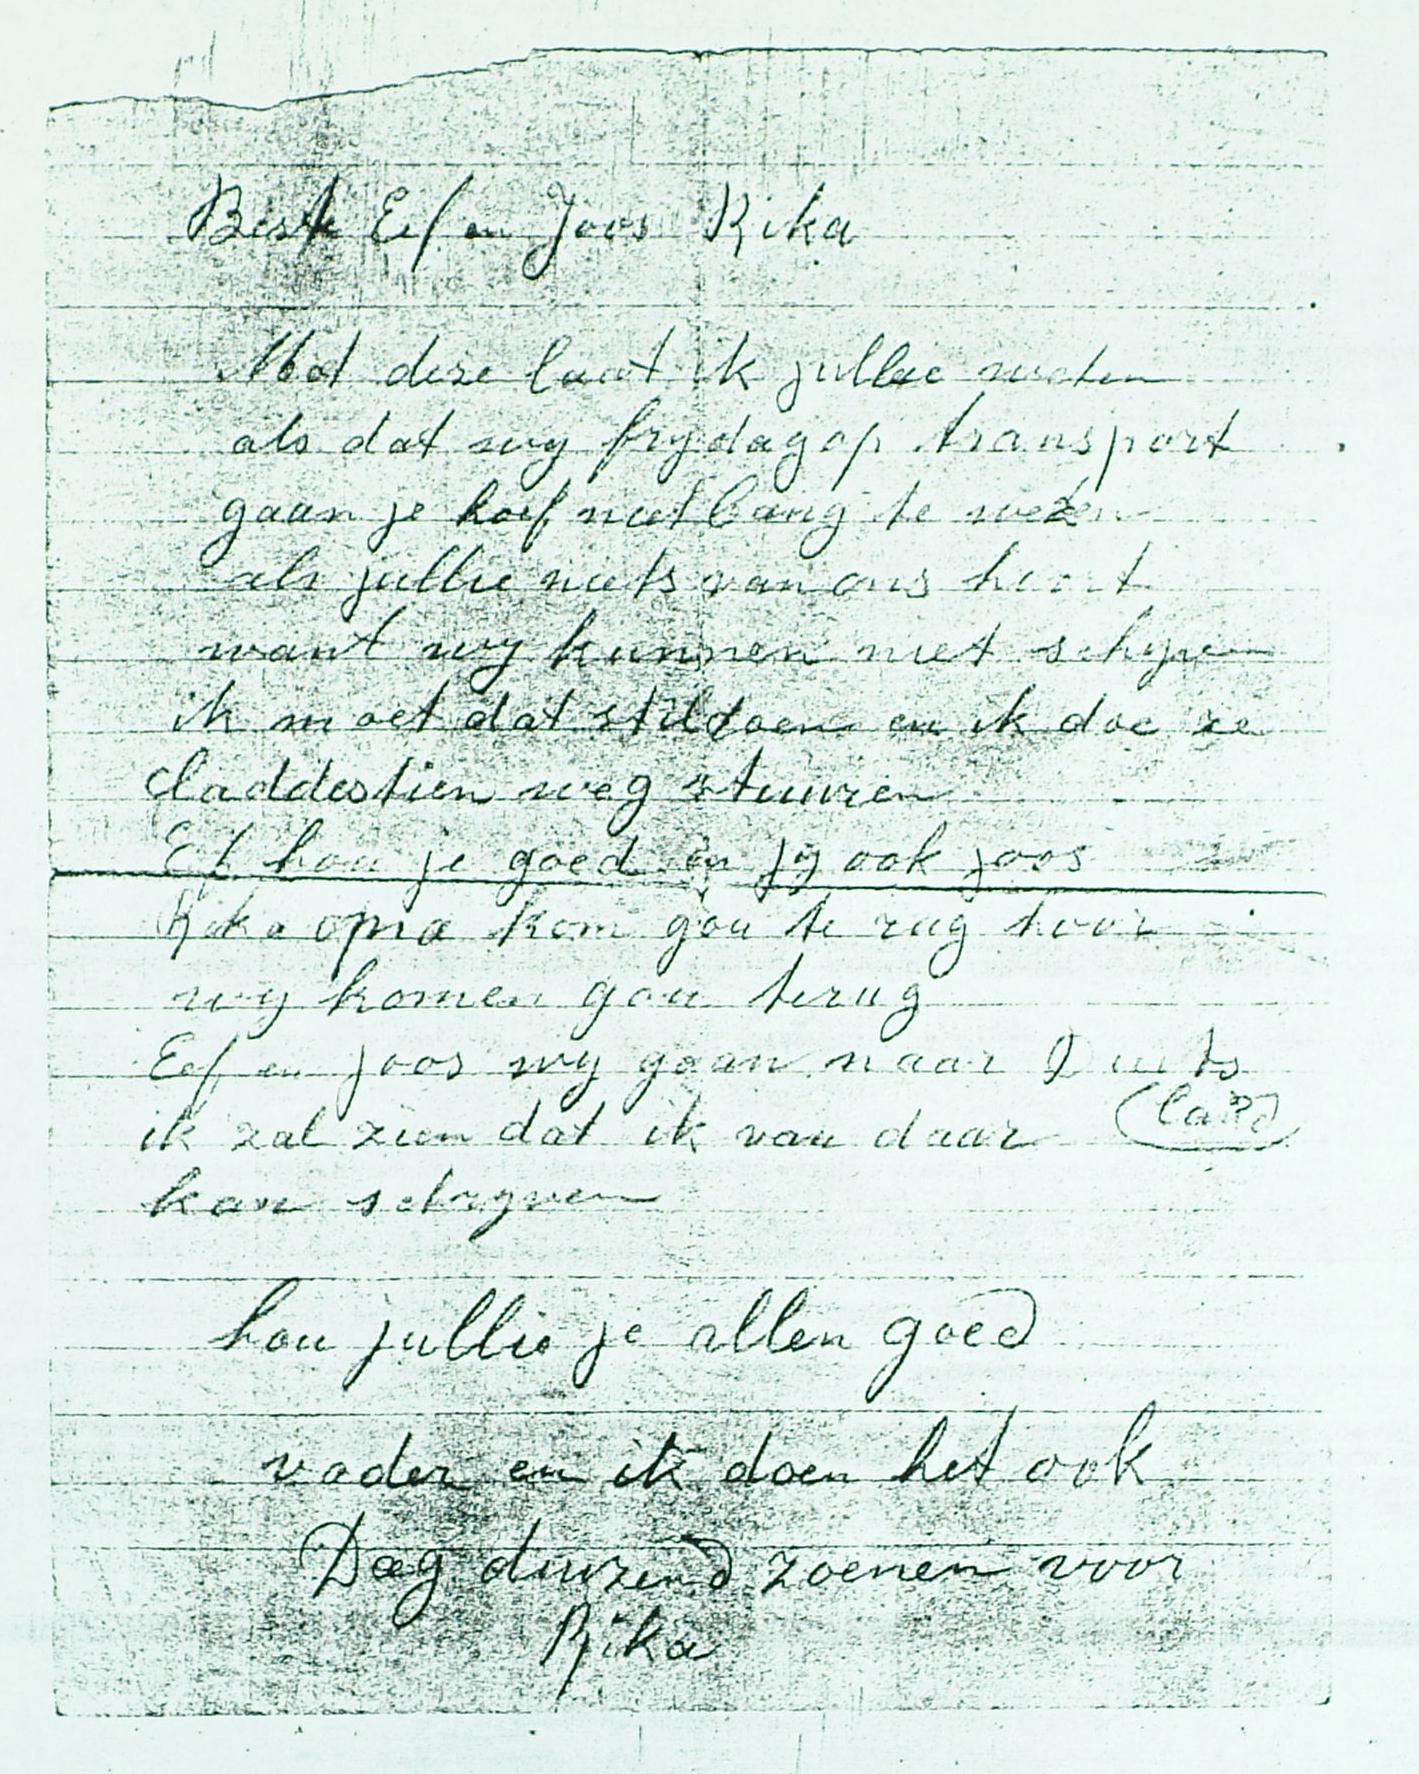 Beste Eef en Joos Rika
Met deze laat ik jullie weten
als dat wy frydag op transport
gaan je hoef niet bang te wezen
als jullie niets van ons hoort
want wy kunnen niet schyven
ik moet dat stil doen en ik doe ze
claddestien weg stuuren
Ef hou je goed en jy ook joos
Rika opa kom gou te rug hoor
wy komen gou terug
Eef en joos wy gaan naar Duits
land
ik zal zien dat ik van daar
kan schryven
hou jullie je allen goed
vader en ik doen het ook
Dag duizend zoenen voor
Rika